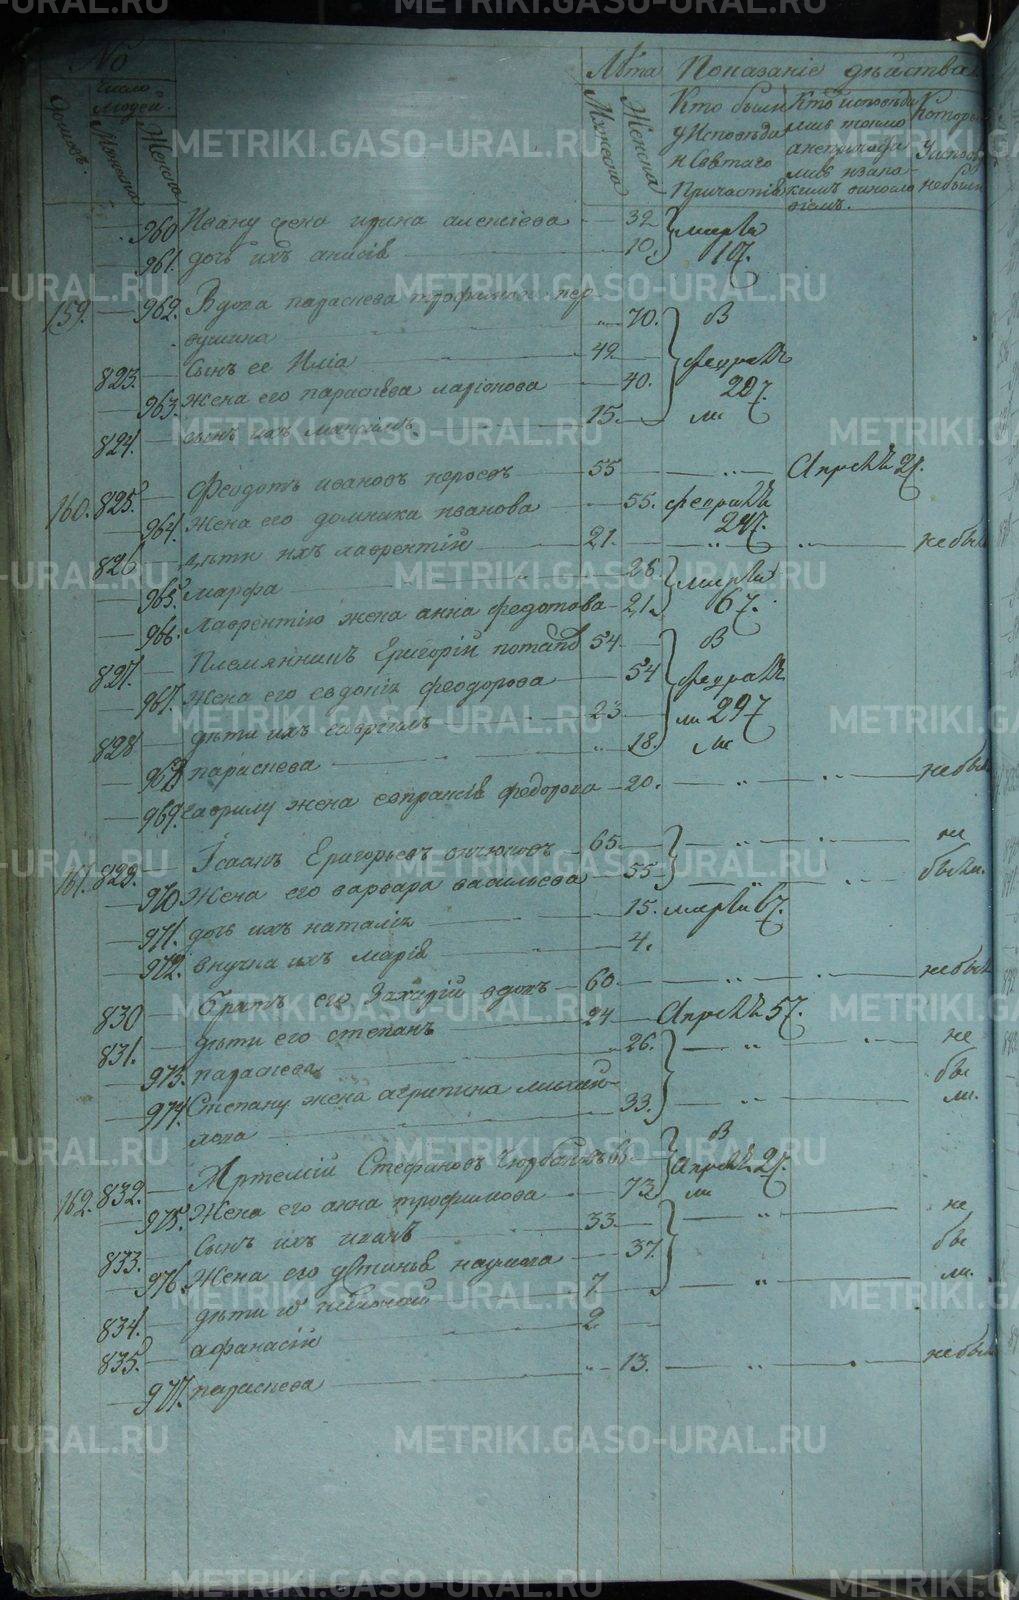 №
Число людей.
Домовъ.
Мужеска
Женска
Лѣта
Мужеска
Женска
Показаніе дѣйства
Кто были у Исповѣди и Святаго Причастія
Кто исповѣдались токмо а непричащались и за каким винословіемъ.
Которые у исповѣди небыли
960 Ивану жена ирина алексіева 32 } марта
961. дочь ихъ анисія 10. 17.
159. 962. Вдова параскева трофимова пер 70. } В
вушина
823. Сынъ ее Иліа 42 феврал
963. жена его параскева ларіонова 40. 22
824. сынъ ихъ максимъ 15. ли
160. 825. Феодотъ ивановъ 55 Апрель 2
964. Жена его домника иванова 55. февраль 24
826 дѣти ихъ лаврентій 21. небыл
965. марфа 28. } марта
966. лаврентію жена анна федотова 21. 6
827. Племянникъ Григорій потапов 54. } В
967. Жена его евдокія феодорова 54 феврал
828 дѣти ихъ гавріилъ 23 ли 29
968 параскева 18. ли
969. гаврилу жена евпраксія федорова 20. небыл
161. 829. Ісаакъ Григорьевъ 65. } не
970 Жена его варвара васильева 55 были.
971. дочь ихъ наталіа 15. марта 6
972. внучка ихъ марія 4.
830 братъ его Захарій вдовъ 60. небыл
831. дѣти его степанъ 24 Апрель 5
973. параскева 26. } не
974. Степану жена агрипина михай 33. бы
лова ли.
162. 832. Артемій Стефановъ } В
975. Жена его анна трофимова 73 Апрель 2 ли
833. Сынъ ихъ иванъ 33. } не
976. Жена его устинья наумова 37. бы
834. дѣти 7 ли.
835. афанасій 2
977. параскева 13. небыл
METRIKI.GASO-URAL.RU